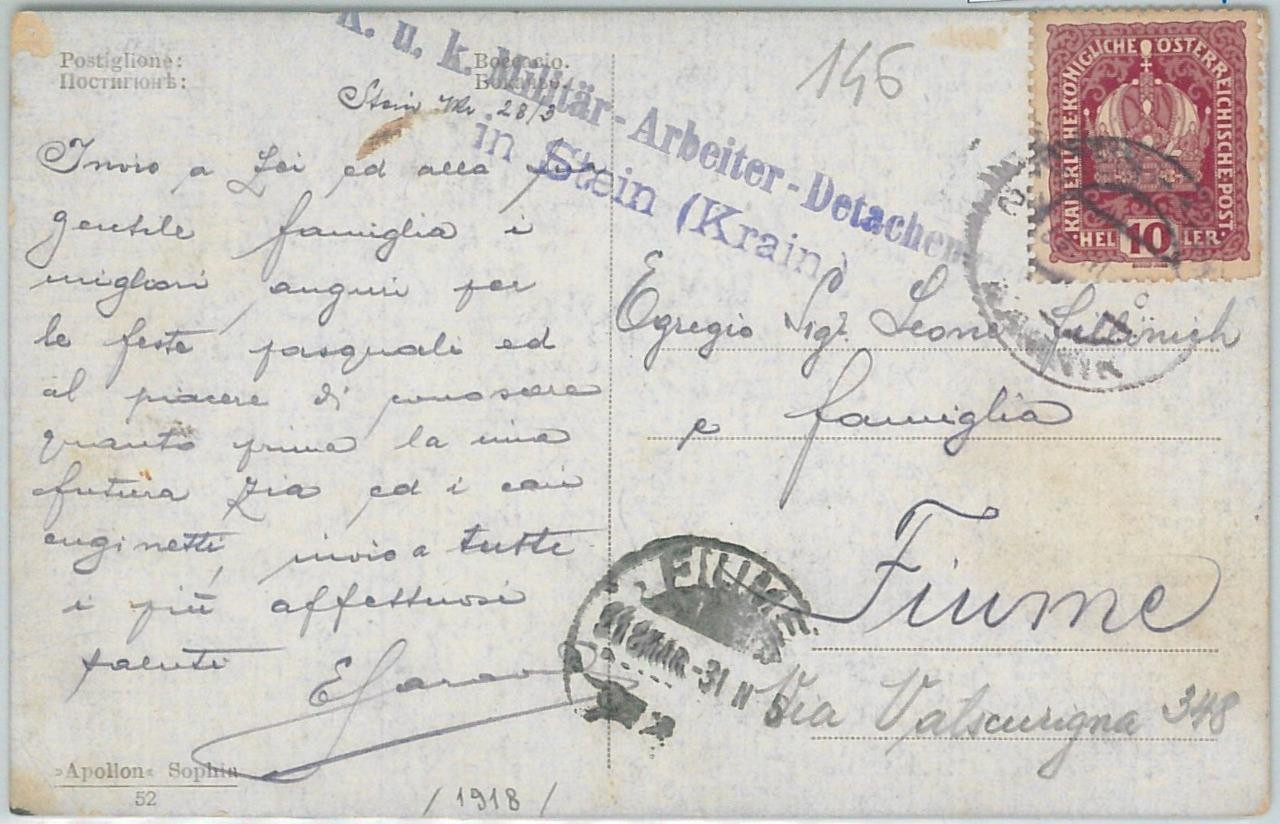 Postiglione:
Постигюнѣ:
Boccacio.
K. u. k. Militär-Arbeiter-Detachem
in Stein (Krain)
146
KAISERLICHE KÖNIGLICHE ÖSTERREICHISCHE POST
HEL 10 LER
Stein 28/3
Invio a Lei ed alla
gentile famiglia i
migliori auguri per
le feste pasquali ed
al piacere di conoscere
quanto prima la mia
futura Zia ed i cari
cuginetti, invio a tutti
i più affettuosi
saluti
Egregio Sigr. Leone
e famiglia
Fiume
Via Valscurigna 348
FIUME
918 MAR -31 N 5
»Apollon« Sophia
52
/1918/